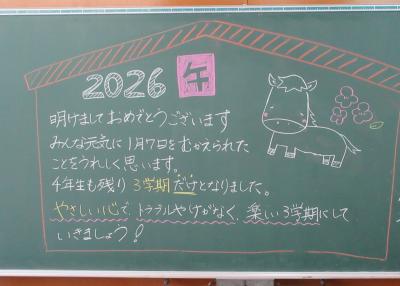 2026 午
明けましておめでとうございます
みんな元気に1月7日をむかえられた
ことをうれしく思います。
4年生も残り3学期だけとなりました。
やさしい心で、トラブルやけがなく、楽しい3学期にして
いきましょう!